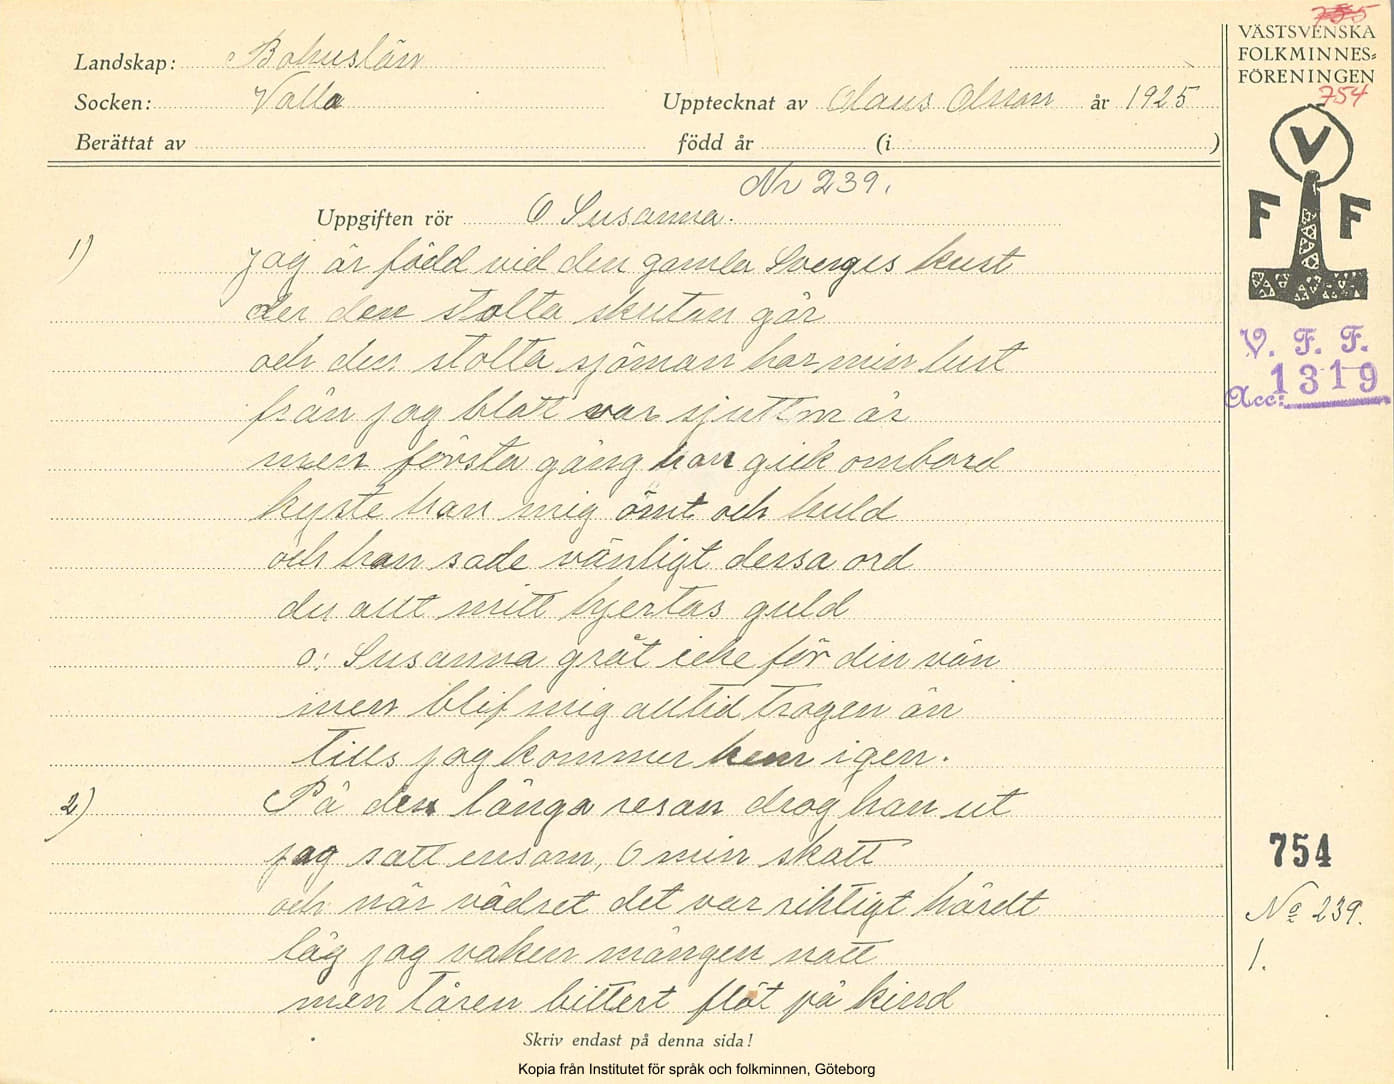 755
VÄSTSVENSKA
FOLKMINNES-
FÖRENINGEN
754
Landskap: Bohuslän
Socken: Valla
Upptecknat av Olaus Olsson år 1925
Berättat av
född år (i )
Nr 239.
Uppgiften rör O Susanna.
V
F F
V. F. F.
Acc: 1319
1) Jag är född vid den gamla Sverges kust
der den stolta skutan går
och den stolta sjöman har min lust
från jag blott var sjutton år
men första gång han gick ombord
kyste han mig ömt och huld
och han sade vänligt dessa ord
du allt mitt hjertas guld
o! Susanna gråt icke för din vän
men blif mig alltid trogen än
tills jag kommer hem igen.
2) På den långa resan drog han ut
jag satt ensam, O min skatt
och när vädret det var riktigt hårdt
låg jag vaken mången natt
men tåren bittert flöt på kind
754
No 239.
1.
Skriv endast på denna sida!
Kopia från Institutet för språk och folkminnen, Göteborg